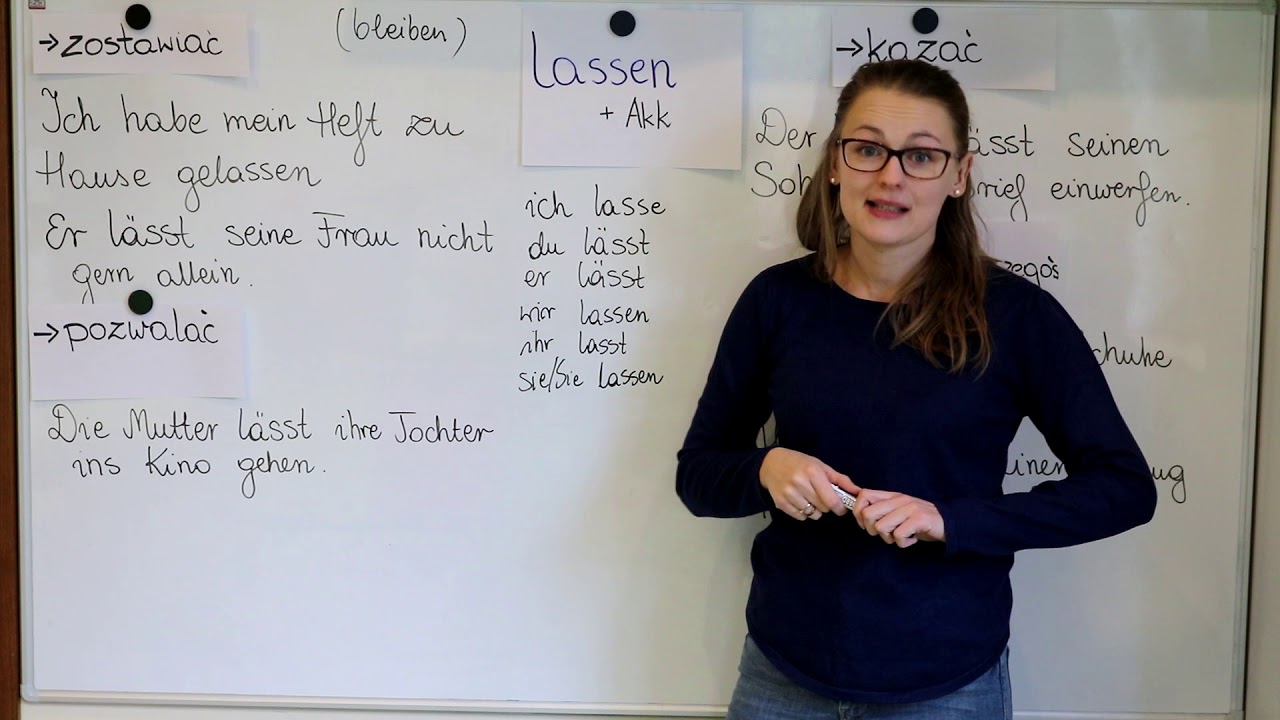 →zostawiać
(bleiben)
Ich habe mein Heft zu
Hause gelassen
Er lässt seine Frau nicht
gern allein.
→pozwalać
Die Mutter lässt ihre Tochter
ins Kino gehen.
lassen
+ Akk
ich lasse
du lässt
er lässt
wir lassen
ihr lasst
sie/Sie lassen
→kazać
Der ässt seinen
Soh rief einwerfen.
zegoś
chuhe
einen ug